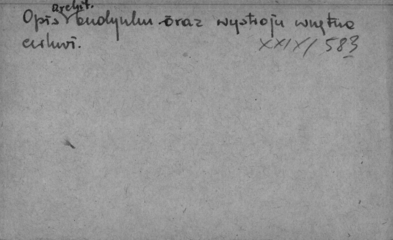 archit.
Opis budynku oraz wystroju wnętrza
cerkwi.
XXIX/583